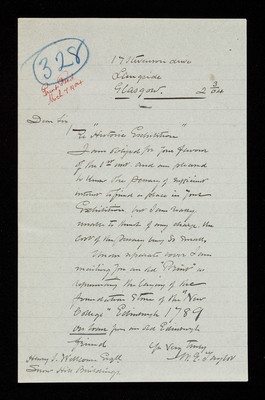 328
17 Stevenson drive
Langside
Glasgow. 2 3/04
Dear Sir
Re "Historic Exhibition"
I am obliged for your favour
of the 1st inst and am pleased
to know the Pomander of sufficient
interest to find a place in your
Exhibition but I am really
unable to think of any charge the
cost of the being so small.
Under separate cover I am
mailing you an old "Print" as
representing the laying of the
foundation Stone of the "New
College" Edinburgh 1789
on loan from an old Edinburgh
friend
Yrs Very Truly
Henry S. Wellcome Esqr
Snow Hill Buildings